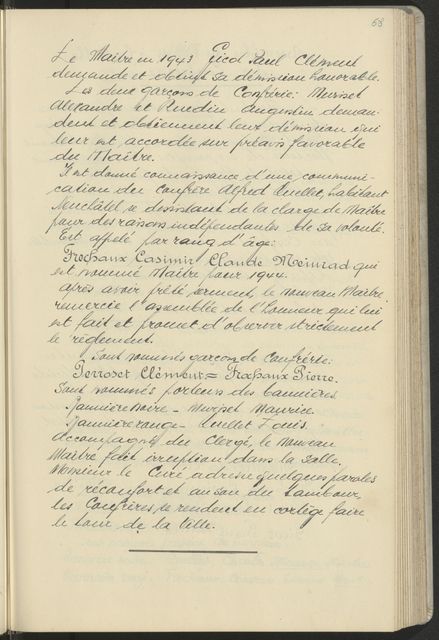 68
Le Maître en 1943 Gicot Paul Clément
demande et obtient sa démission honorable.
Les deux garçons de Confrérie: Muriset
Alexandre et Ruedin Augustin deman-
dent et obtiennent leur démission qui
leur est accordée sur préavis favorable
du Maître.
Il est donné connaissance d'une communi-
cation du Confrère Alfred Quellet, habitant
Neuchâtel, se desistant de la charge de Maître
pour des raisons indépendantes de sa volonté.
Est appelé par rang d'âge:
Frochaux Casimir Claude Meinrad qui
est nommé Maître pour 1944.
Après avoir prêté serment, le nouveau Maître
remercie l'assemblée de l'honneur qui lui
est fait et promet d'observer strictement
le règlement.
Sont nommés garçons de Confrérie:
Perroset Clément = Frochaux Pierre.
Sont nommés porteurs des bannières
Bannière noire - Muriset Maurice
Bannière rouge - Quellet Louis.
Accompagné du Clergé, le nouveau
Maître fait irruption dans la salle,
Monsieur le Curé adresse quelques paroles
de réconfort et au son du tambour,
les Confrères se rendent en cortège faire
le tour de la Ville.